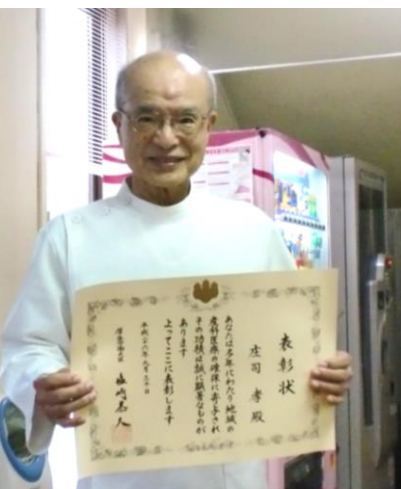 表彰状
庄司 孝 殿
あなたは多年にわたり地域の
産科医療の確保に寄与され
その功績は誠に顕著なものが
あります
よってここに表彰します
平成二十六年九月三十日
厚生労働大臣
塩崎恭久